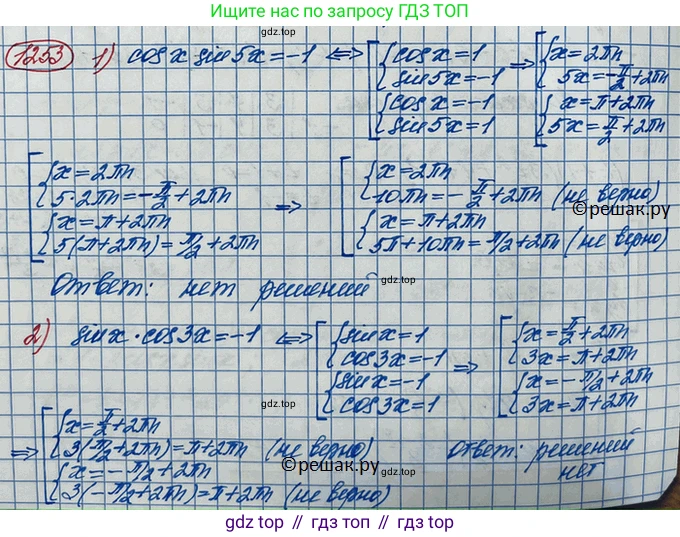 Ищите нас по запросу ГДЗ ТОП
gdz.top
1253 1) cos x sin 5x = -1 ⟺ [ { cos x = 1 ; sin 5x = -1 { cos x = -1 ; sin 5x = 1 ⟹ [ { x = 2πn ; 5x = -π/2 + 2πn { x = π + 2πn ; 5x = π/2 + 2πn
gdz.top
[ { x = 2πn ; 5·2πn = -π/2 + 2πn { x = π + 2πn ; 5(π + 2πn) = π/2 + 2πn ⟹ [ { x = 2πn ; 10πn = -π/2 + 2πn (не верно) { x = π + 2πn ; 5π + 10πn = π/2 + 2πn (не верно)
©решак.ру
gdz.top
Ответ: нет решений
2) sin x · cos 3x = -1 ⟺ [ { sin x = 1 ; cos 3x = -1 { sin x = -1 ; cos 3x = 1 ⟹ [ { x = π/2 + 2πn ; 3x = π + 2πn { x = -π/2 + 2πn ; 3x = π + 2πn
gdz.top
⟹ [ { x = π/2 + 2πn ; 3(π/2 + 2πn) = π + 2πn (не верно) { x = -π/2 + 2πn ; 3(-π/2 + 2πn) = π + 2πn (не верно)
Ответ: решений
нет
©решак.ру
©решак.ру
gdz.top // гдз топ // гдз.top